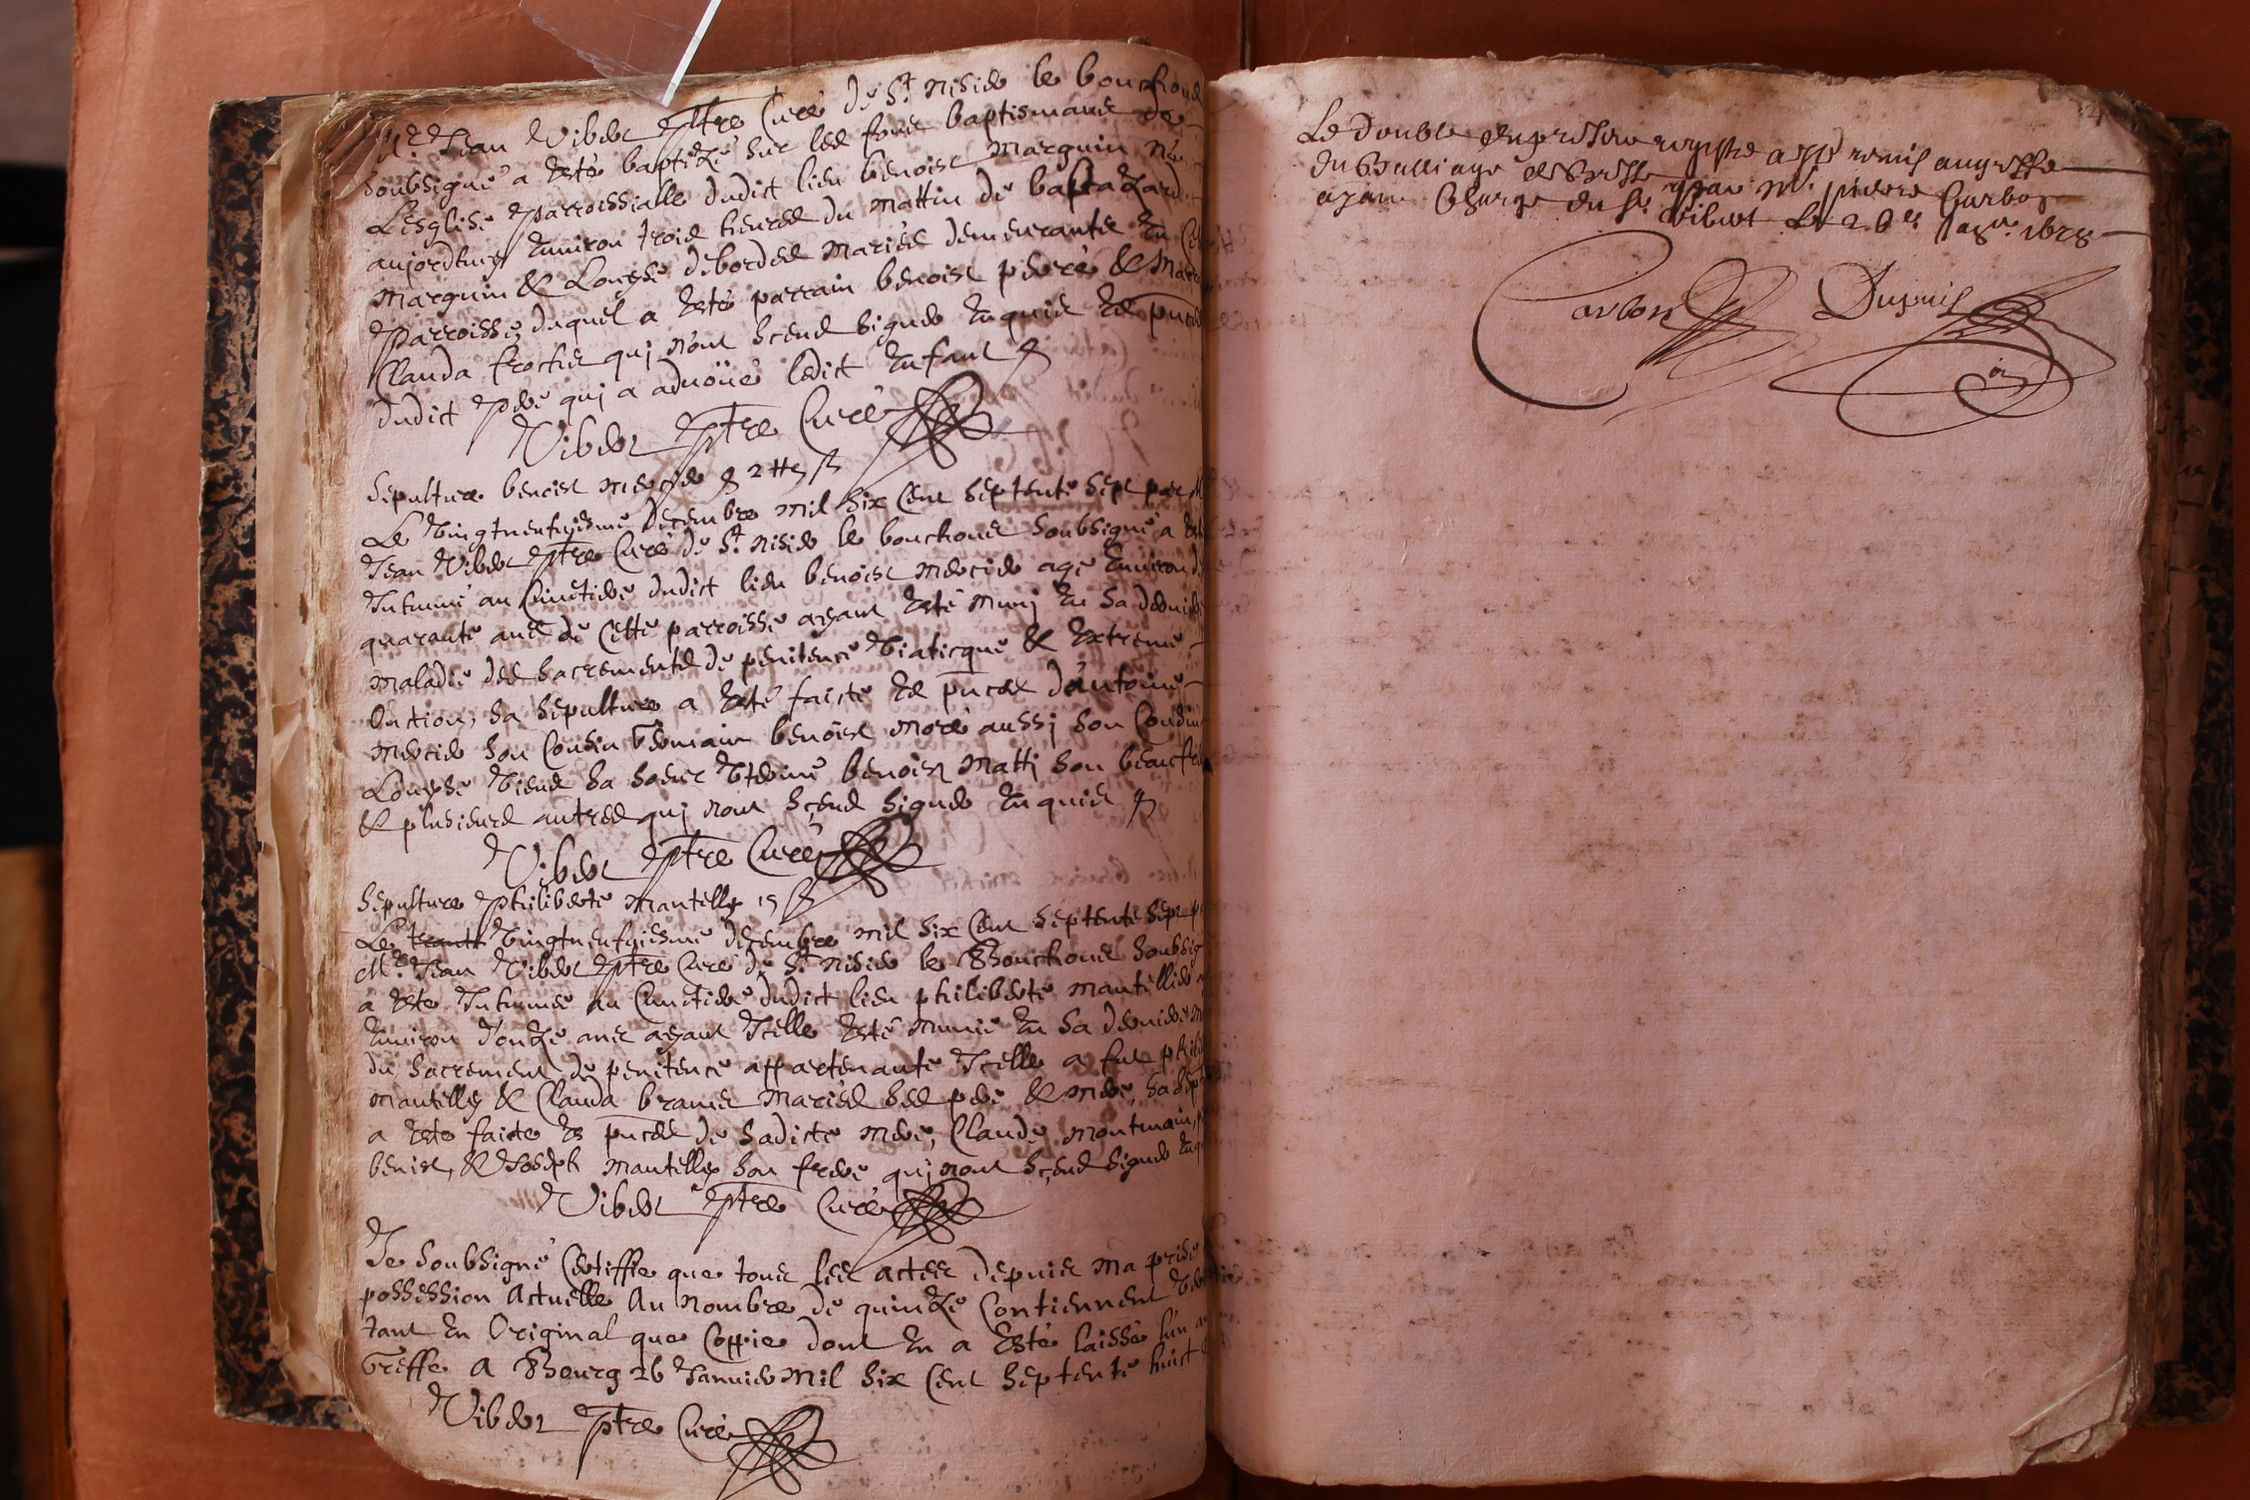 Mre Jean Vibert ptre Curé de St nisier le bouchoux
soubsigné a esté baptizé sur les fonts baptismaux de
Lesglise parroissialle dudict lieu benoist marguin né
aujordhuy environ trois heures du mattin de
marguin & Louyse debordes mariés demeurants en
parroisse, duquel a esté parrain benoist & marr
Clauda frochet quj n'ont sceus signer enquis es pnce
dudict pere quj a advoüé ledict enfant
Vibert ptre Curé
Sepulture benoist mercier
Le vingtneufviesme decembre mil six cent septente sept par M
Jean Vibert ptre Curé de St nisier le bouchoux soubsigné a esté
Inhumé au Cimetiere dudict lieu benoist mercier agé environ de
quarante ans de cette parroisse ayant esté munj en sa derniere
maladie des sacrements de penitence viaticque & extreme
Onction, sa sepulture a esté faicte es pnces d'antoine
mercier son Cousin Germain benoist moré aussj son Cousin
Louyse sa soeur benoist Mattj son beaufrere
& plusieurs autres quj n'ont sceus signer enquis
Vibert ptre Curé
Sepulture philiberte mantelly 15 s
Le trante vingtneufviesme decembre mil six cent septente sept p
Mre Jean Vibert ptre Curé de St nisier le Bouchoux soubsig
a esté Inhumée au Cimetiere dudict lieu philiberte mantellier
environ donze ans ayant Icelle esté munie en sa derniere m
du sacrement de penitence appartenante Icelle a fut phili
mantelly & Clauda mariés ses pere & mere, sa sep
a esté faicte es pnces de sadicte mere, Claude montmain,
benist, & Joseph mantelly son frere quj n'ont sceus signer enq
Vibert ptre Curé
Je soubsigné Certiffie que tous les actes depuis ma prise
possession Actuelle Au nombre de quinze Contiennent
tant en Original que Coppie dont en a esté laissé l'un au
Greffe A Bourg 26 Janvier mil six cent septente huict
Vibert ptre Curé
Le double du present registre a esté remis au greffe
du Balliage de Bresse par Mre pierre Carbon
ayant Charge du Sr Vibert Le 26e Janr 1678
Carbon Dupuis